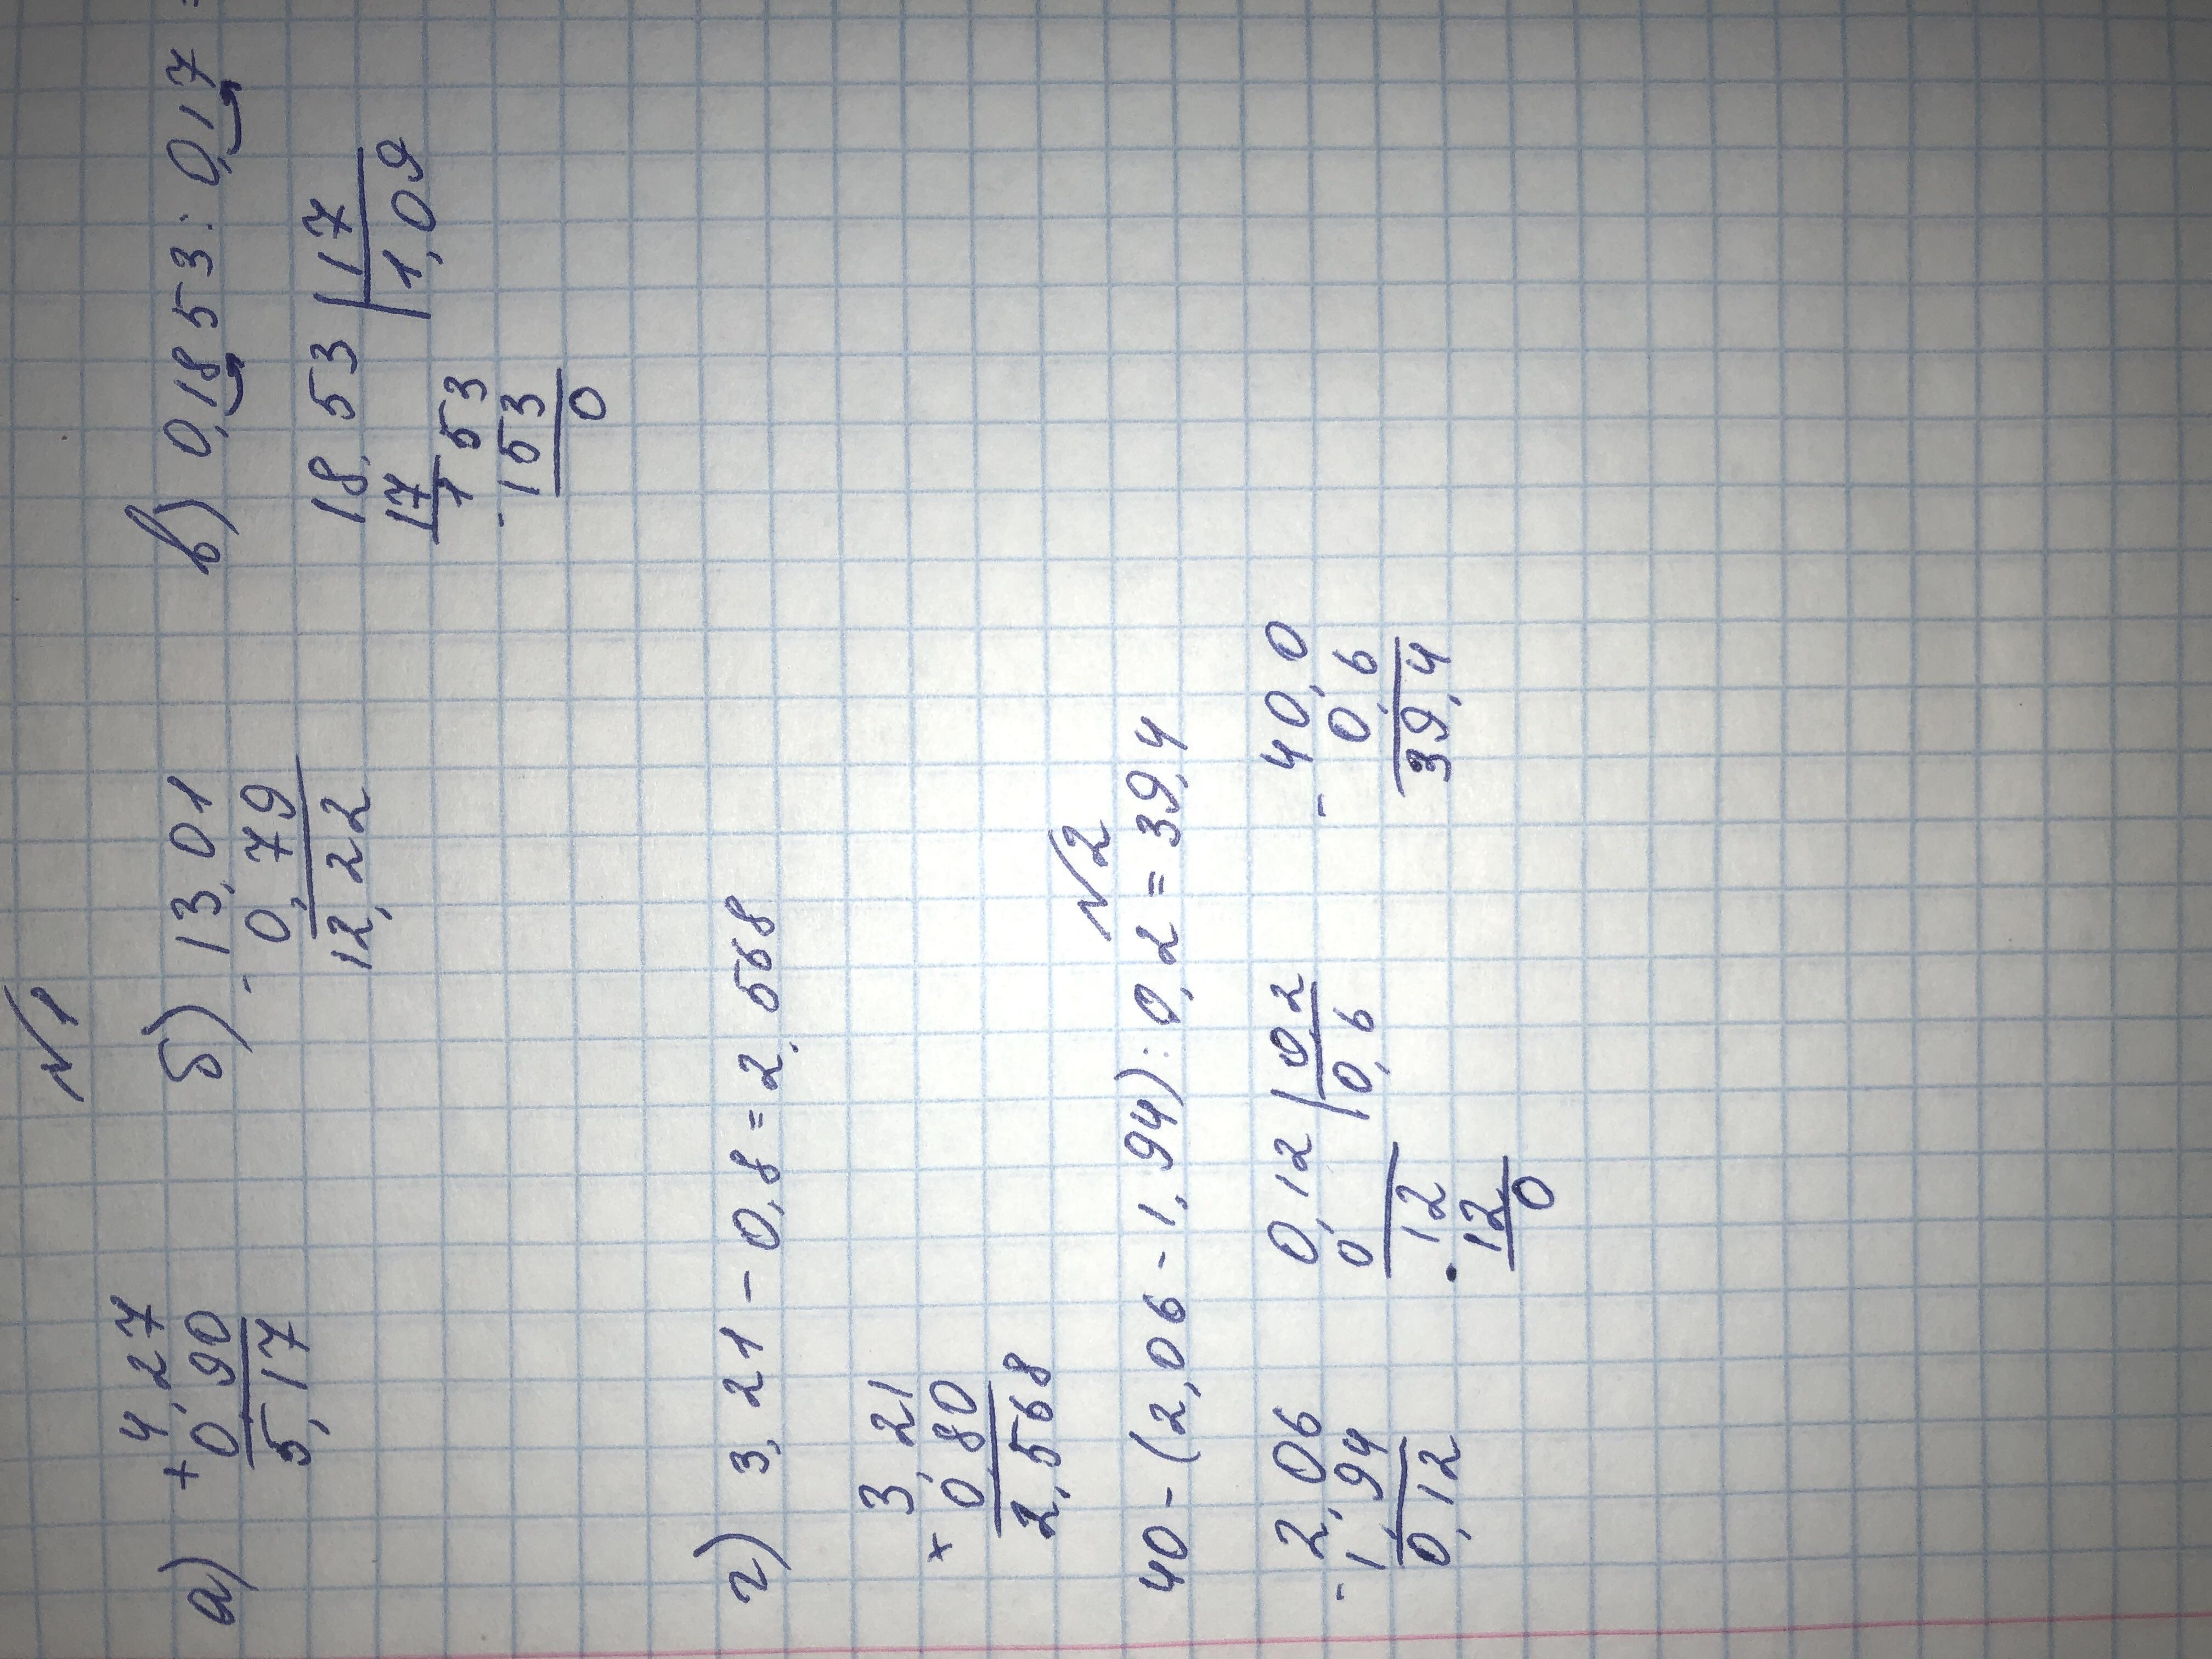 N1
а) + 4,27
0,90
5,17
б) - 13,01
0,79
12,22
в) 0,1853 : 0,17
18,53 | 17
17 | 1,09
153
- 153
0
г) 3,21 - 0,8 = 2,568
× 3,21
0,80
2,568
N2
40 - (2,06 - 1,94) : 0,2 = 39,4
- 2,06
1,94
0,12
0,12 | 0,2
0 | 0,6
12
12
0
- 40,0
0,6
39,4